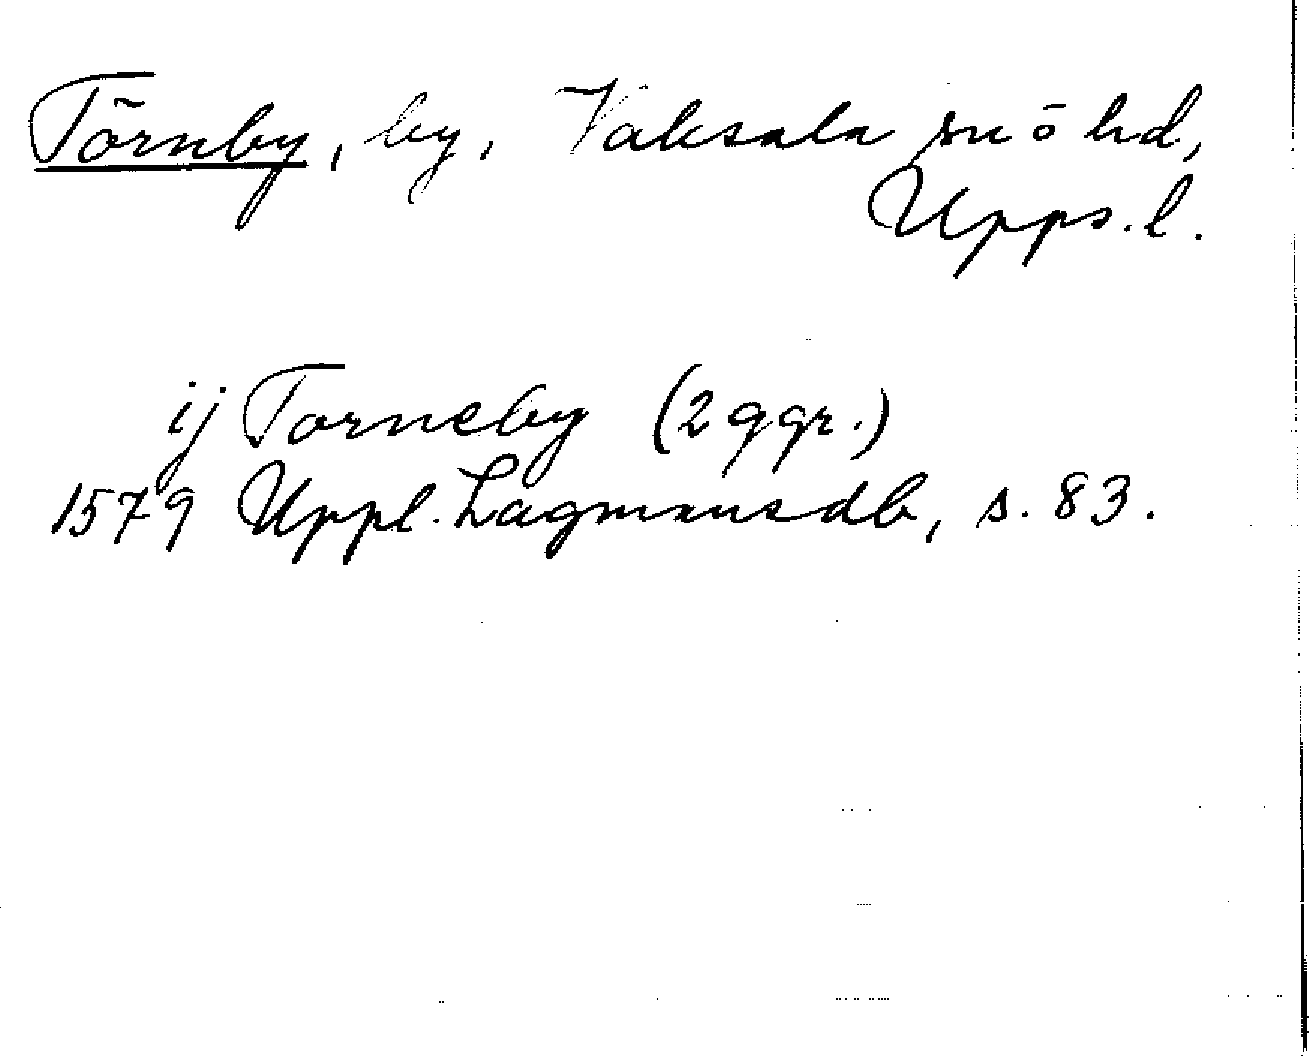 Törnby, by, Vaksala sn ö hd,
Upps. l.
ij Torneby (2 ggr.)
1579 Uppl. Lagmansdb, s. 83.